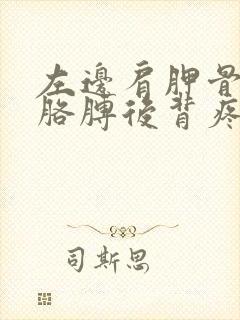 左邊肩胛骨
胳膊後背疼
司斯思